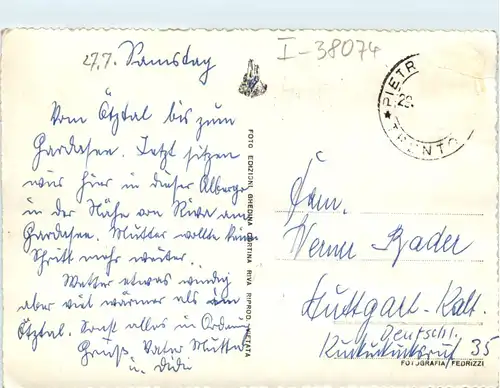 27.7. Samstag
I-38074
PIETR
28.
TRENTO
Vom Ötztal bis zum
Gardasee. Jetzt sitzen
wir hier in dieser Alberge
in der Nähe von Riva am
Gardasee. Mutter wollte kein
Schritt mehr weiter.
Wetter etwas windig
aber viel wärmer als im
Ötztal. Sonst alles in Orden,
Gruß Vater Mutter
u. Didi
FOTO EDIZIONI GHEDINA CORTINA RIVA RIPROD. VIETATA
Fam.
Werner Bader
Stuttgart-Kalt.
Deutschl.
35
FOTOGRAFIA FEDRIZZI